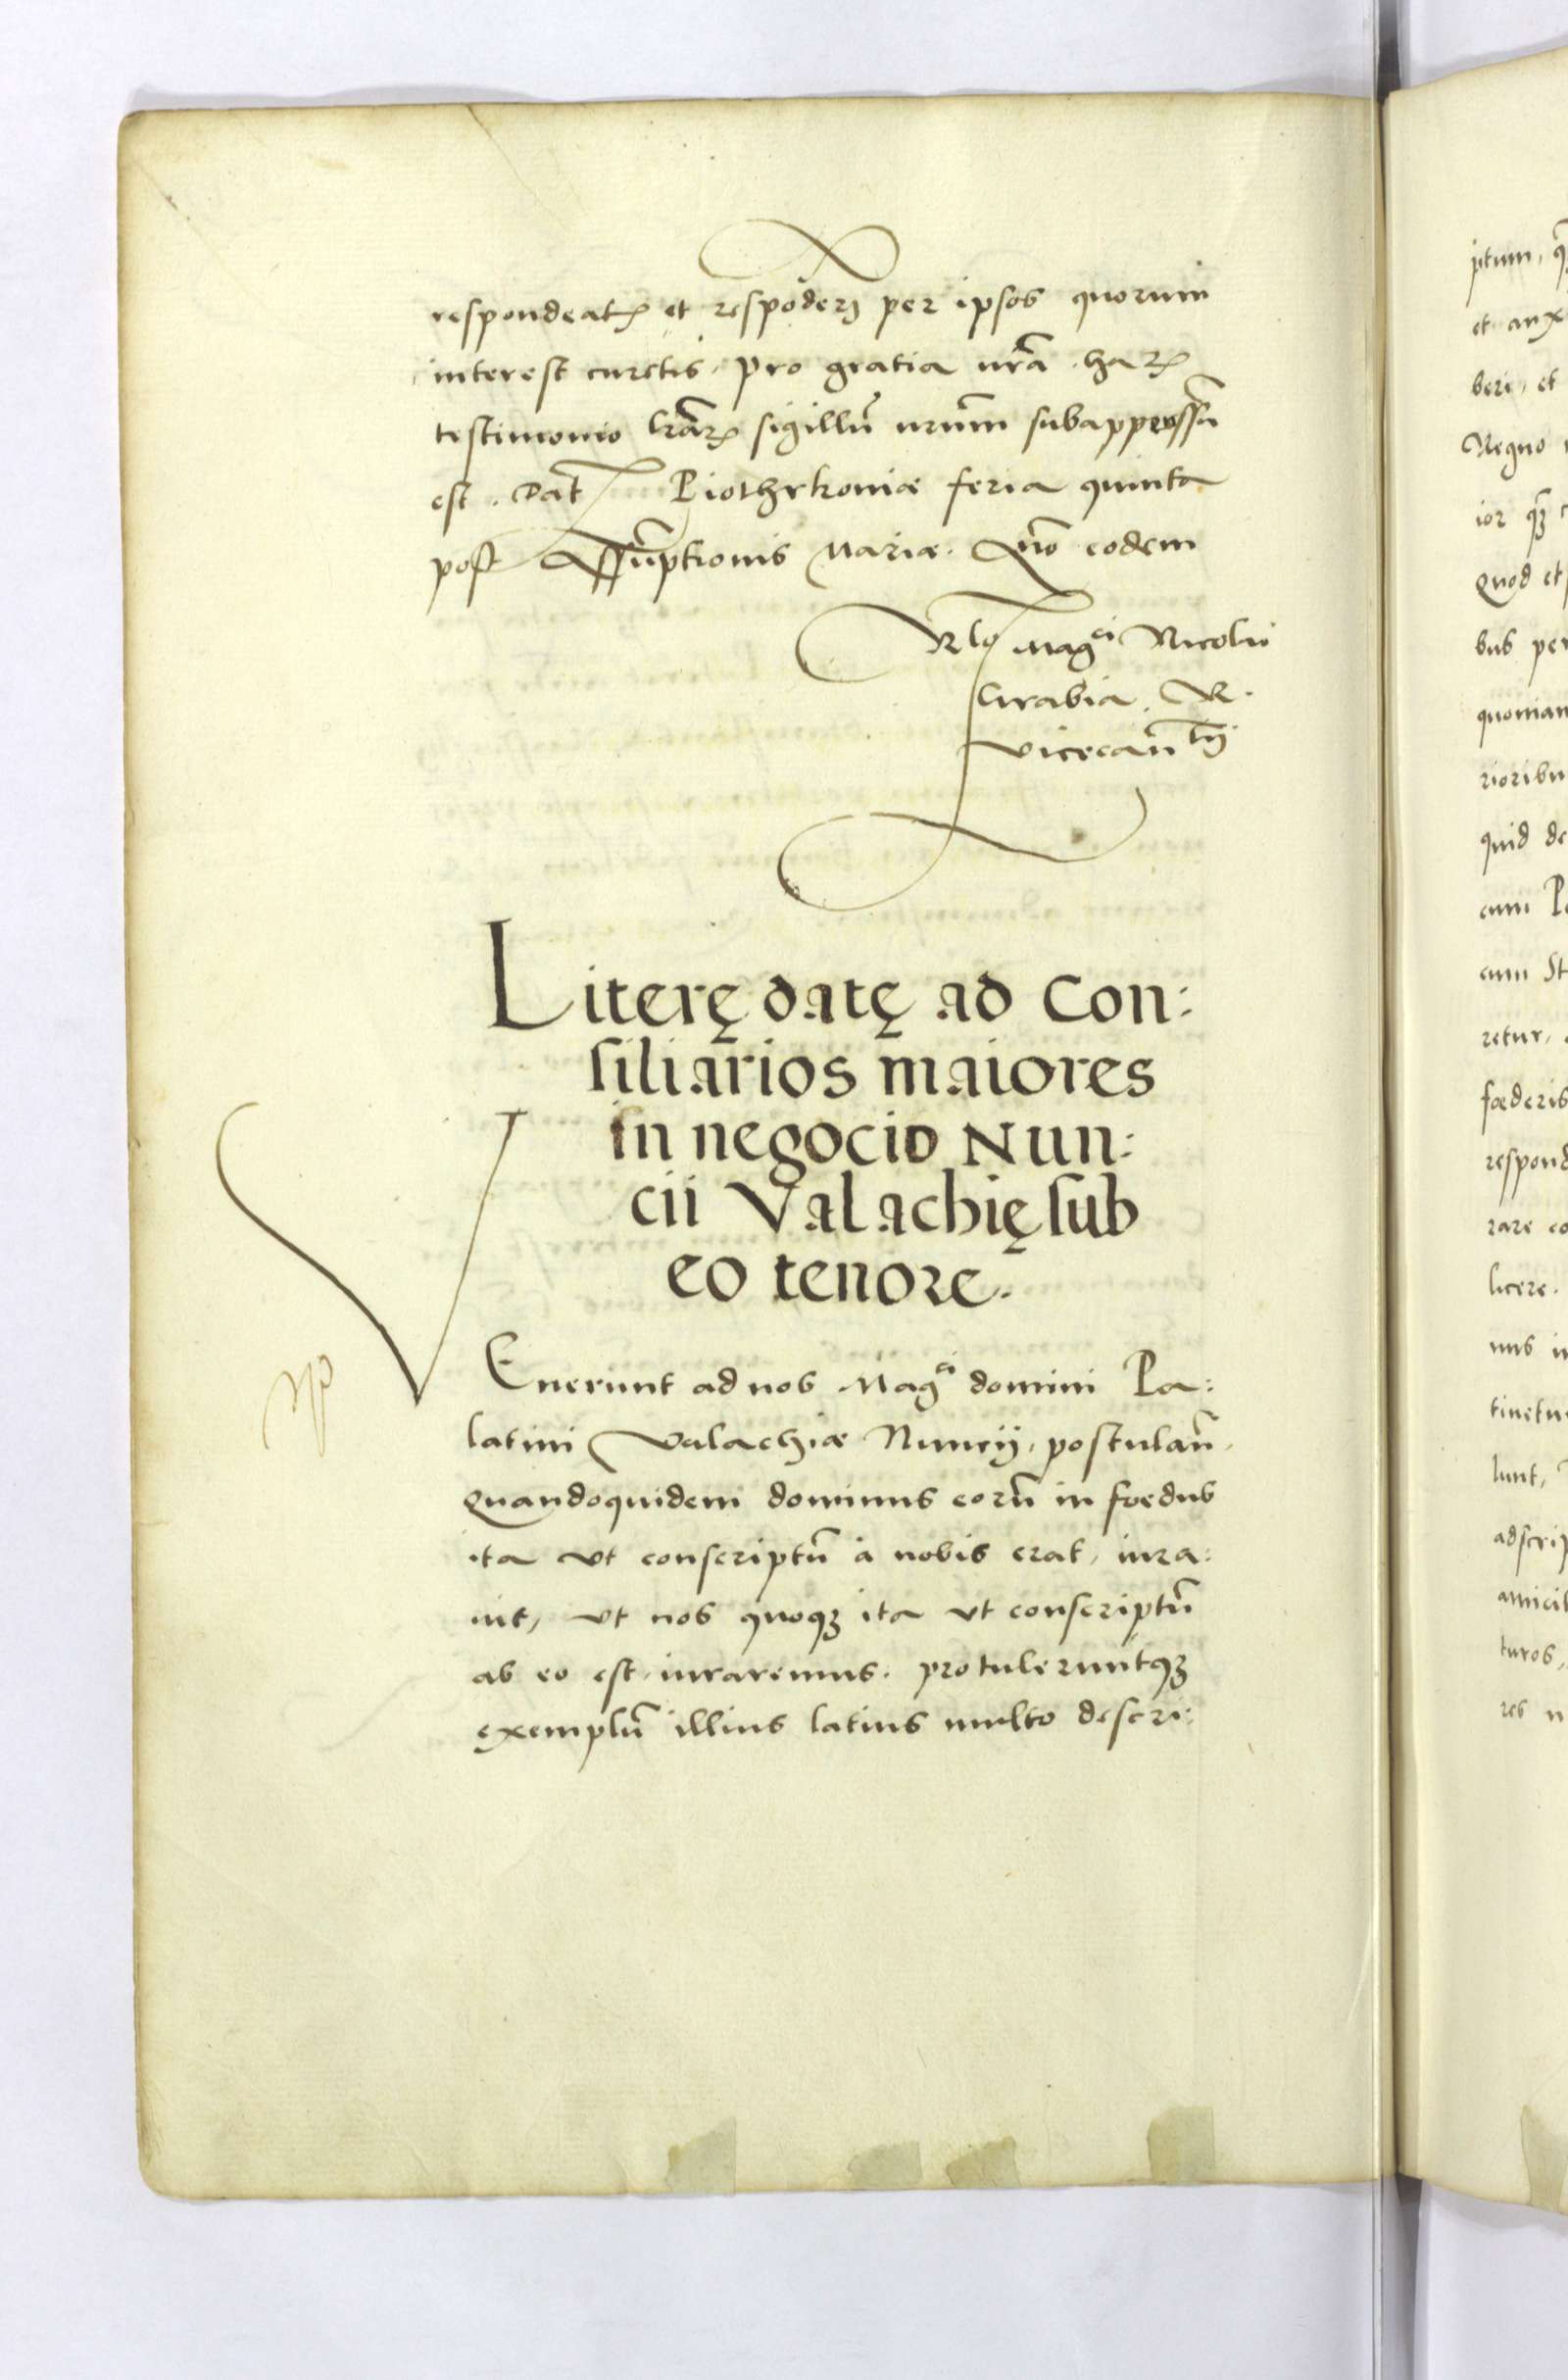 respondeatꝝ et respōderj per ipsos quorum
interest curetis. pro gratia nrã. haꝝ
testimonio lrãꝝ sigillũ nrũm subappressũ
est. Dat̃ Piothrkoniæ feria quinta
post Assũptionis Mariæ. Año eodem
Rlõ Mag^ci Nicolai
Grabia. R.
vicecañ^rij
Literę datę ad Con:
siliarios maiores
in negocio Nun:
cii Valachię sub
eo tenore.
VEnerunt ad nos Mag^ci domini Pa:
latini Valachiæ Nuncij, postulañ.
Quandoquidem dominus eorũ in fœdus
ita vt conscriptũ à nobis erat, iura:
uit, vt nos quoqꝫ ita vt conscriptũ
ab eo est iuraremus. protuleruntqꝫ
exemplũ illius latius multo descri:
ptum, q̃
et anx
beri, et
Regno
ior qꝫ̃
Quod et
bus per
quoniam
rioribu
quid de
cum P
cum St
retur,
fœderis
respond
rare co
licere.
nus in
tinetur
lunt,
adscrip
amicit
turos,
res n